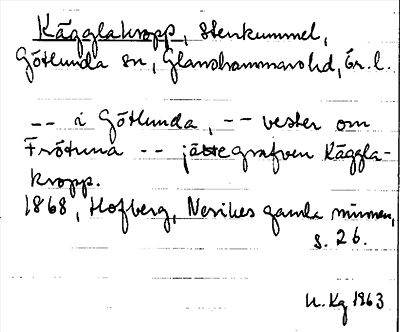 Kägglakropp, stenkummel,
Götlunda sn, Glanshammars hd, Ör. l.
-- i Götlunda, -- vester om
Frötuna -- jättegrafven Käggla-
kropp.
1868, Hofberg, Nerikes gamla minnen,
s. 26.
U. Kg 1963